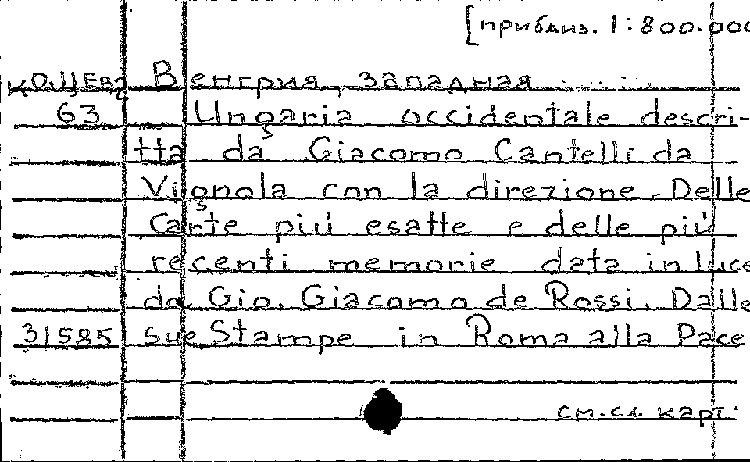 [приблиз. 1:800.000
Венгрия, западная
63 Ungaria occidentale descri-
tta da Giacomo Cantelli da
Vignola con la direzione. Delle
Carte piú esatte e delle piú
recenti memorie data in luce
da Gio. Giacomo de Rossi. Dalle
31585 sue Stampe in Roma alla Pace
см.сл. карт.